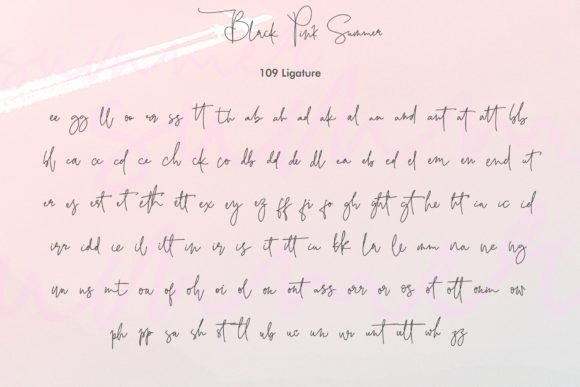 Black Pink Summer
109 Ligature
ee gg ll oo rr ss tt th ab ah ad ak al an and ant at att bb
bl ca cc cd ce ch ck co db dd de dl ea eb ed el em en end et
er es est et eth ett ex ey ez ff fi fo gh ght gt he ht ca ic id
irr idd ie il itt in ir is it itt cu bk la le mm na ne ng
nn ns mt oa of oh oi ol on ont oss orr or os ot ott oum ow
ph pp sa sh st tl ub uc un ur unt utt wh zz